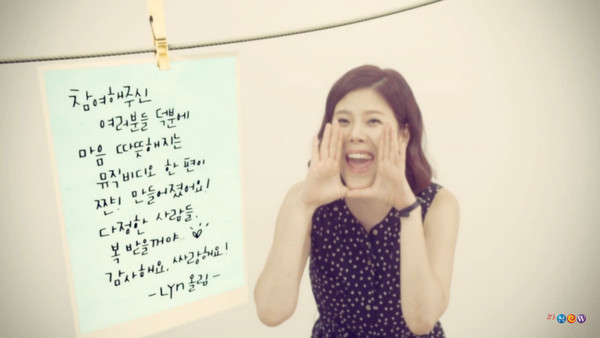 참여해주신
여러분들 덕분에
마음 따뜻해지는
뮤직비디오 한 편이
짠! 만들어졌어요!
다정한 사람들,
복 받을꺼야.
감사해요, 싸랑해요!
-Lyn 올림-
New